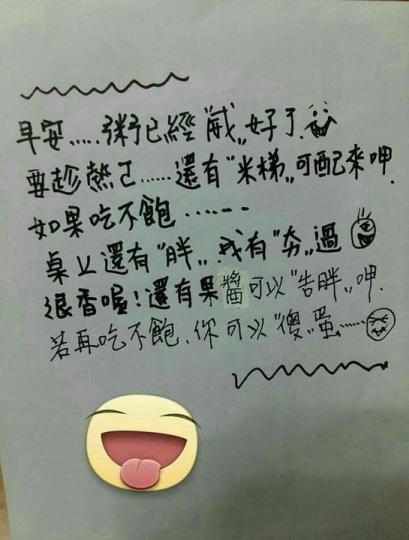 早安.....粥已經"威"好了.
要趁熱ㄛ......還有"米梯"可配來呷.
如果吃不飽.......
桌上還有"胖",我有"夯"過
很香喔!還有果醬可以"告胖"呷.
若再吃不飽,你可以"傻"蛋.....